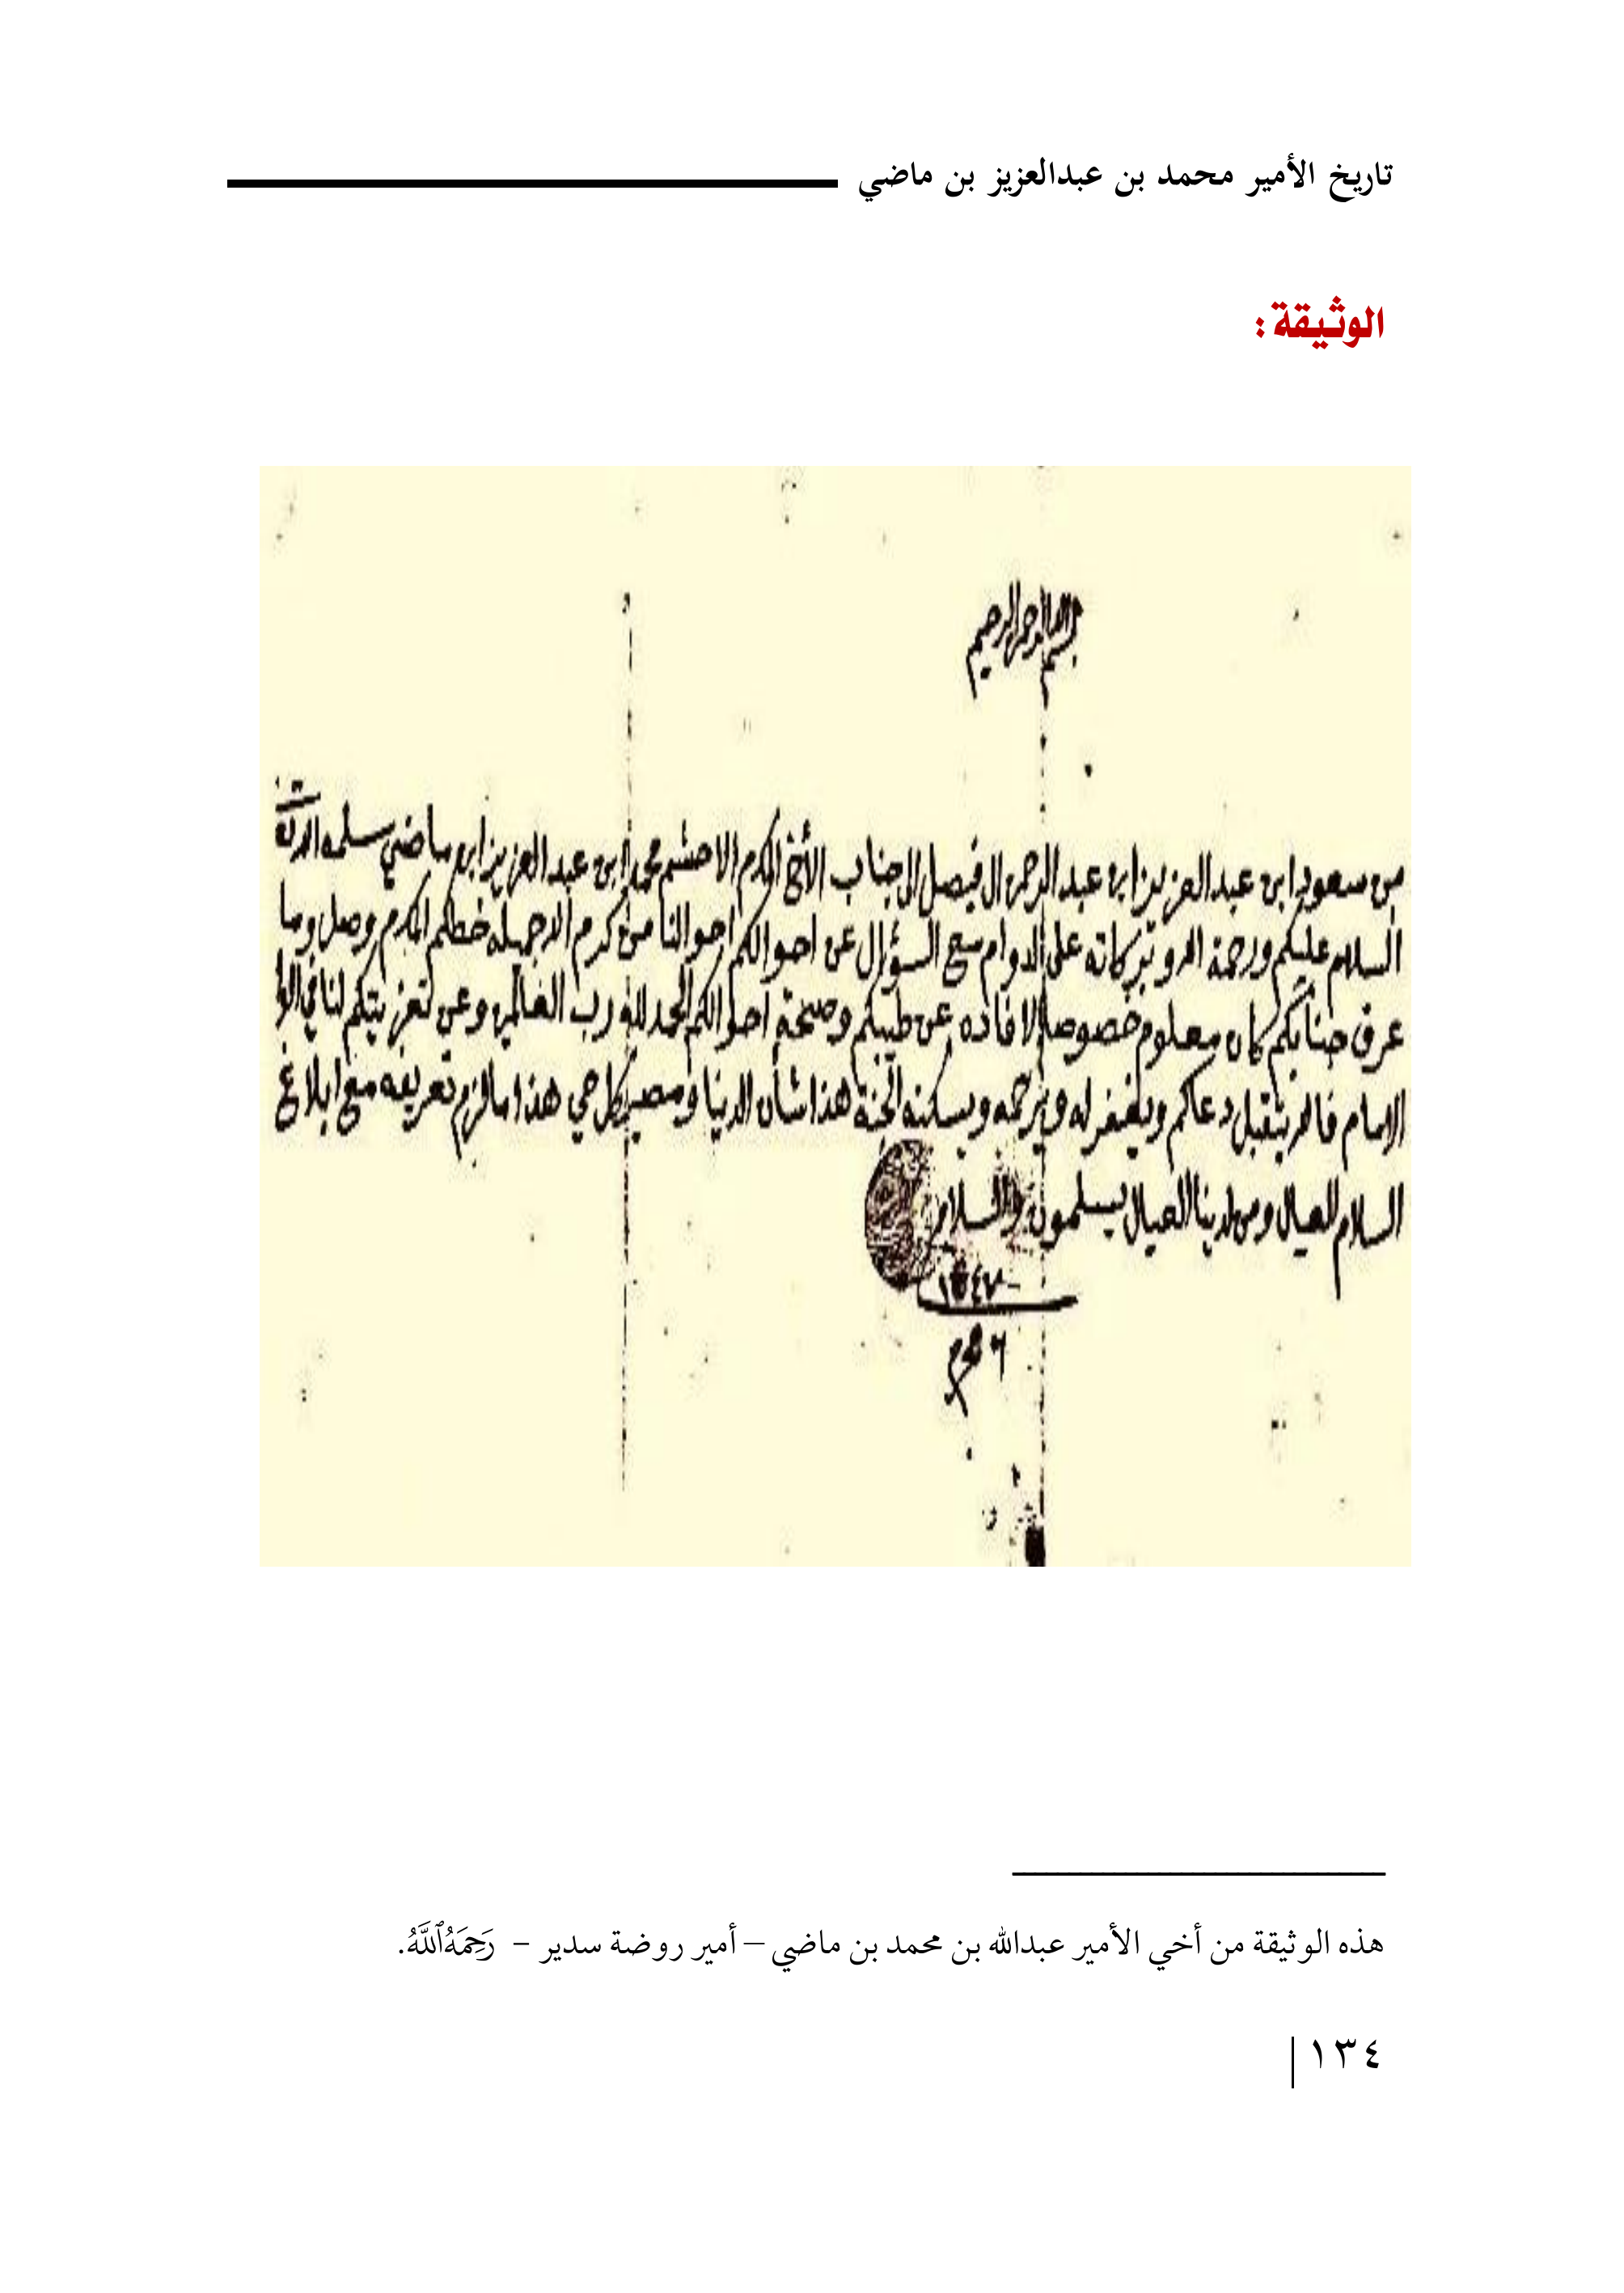 تاريخ الأمير محمد بن عبدالعزيز بن ماضي
الوثيقة:
بسم الله الرحمن الرحيم
من سعود ابن عبد العزيز ابن عبد الرحمن ال فيصل الى جناب الأخ المكرم الاحشم محمد ابن عبد العزيز ابن ماضي سلمه الله تعالى
السلام عليكم ورحمة الله وبركاته على الدوام مع السؤال عن احوالكم احوالنا من كرم الله جميله خطكم المكرم وصل وما
عرف جنابكم كان معلوم خصوصا الافاده عن طيبكم وصحة احوالكم الحمد لله رب العالمين وعن تعزيتكم لنا في الوالد
الامام فالله يتقبل دعاكم ويغفر له ويرحمه ويسكنه الجنة هذا شان الدنيا ومصير كل حي هذا مالزم تعريفه مع ابلاغ
السلام العيال ومن لدينا العيال يسلمون والسلام
١٣٤٧
٦ محرم
هذه الوثيقة من أخي الأمير عبدالله بن محمد بن ماضي – أمير روضة سدير – رَحِمَهُ ٱللَّهُ.
١٣٤